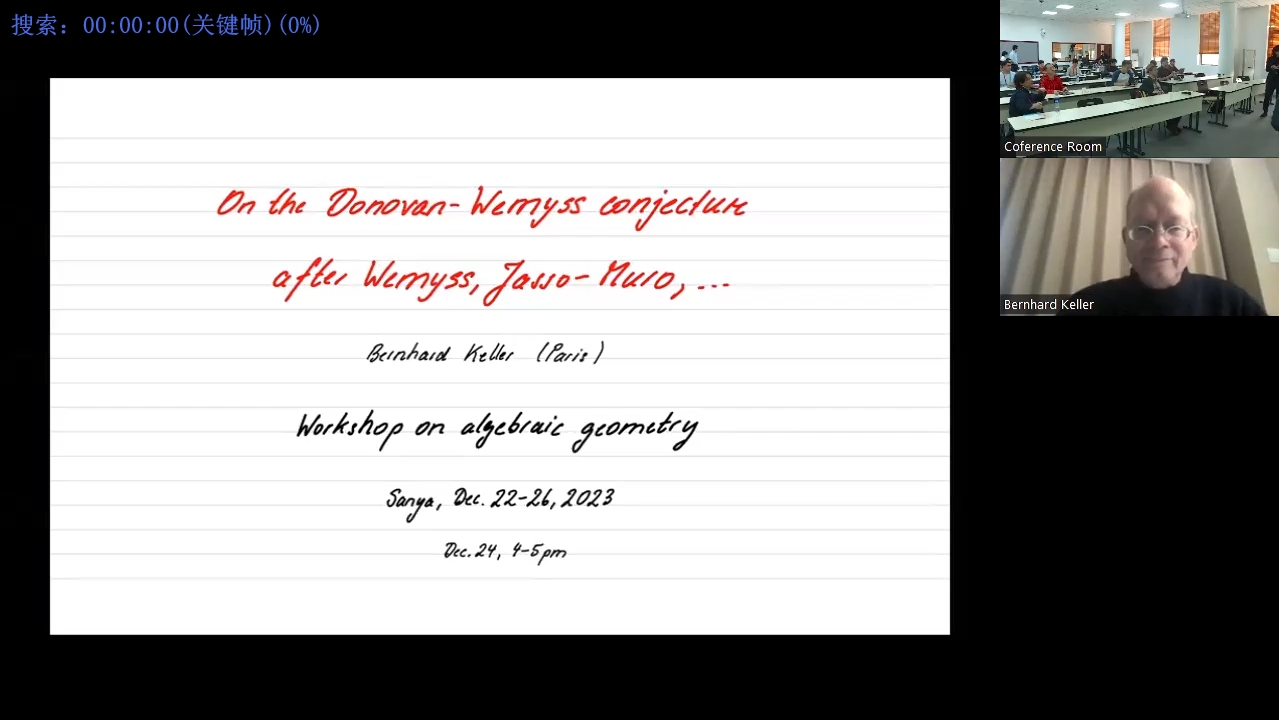 搜索: 00:00:00(关键帧)(0%)
On the Donovan-Wemyss conjecture
after Wemyss, Jasso-Muro, ...
Bernhard Keller (Paris)
Workshop on algebraic geometry
Sanya, Dec. 22-26, 2023
Dec. 24, 4-5pm
Coference Room
Bernhard Keller